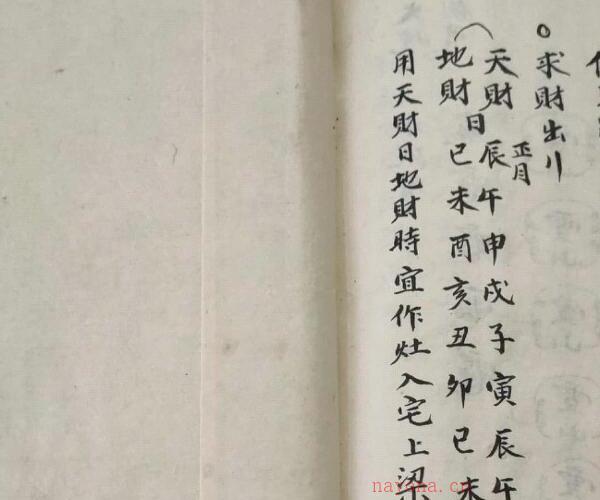 ○求財出川
天財日正月辰午申戌子寅辰午
地財 巳未酉亥丑卯巳未
用天財日地財時宜作灶入宅上梁
nayona.cn